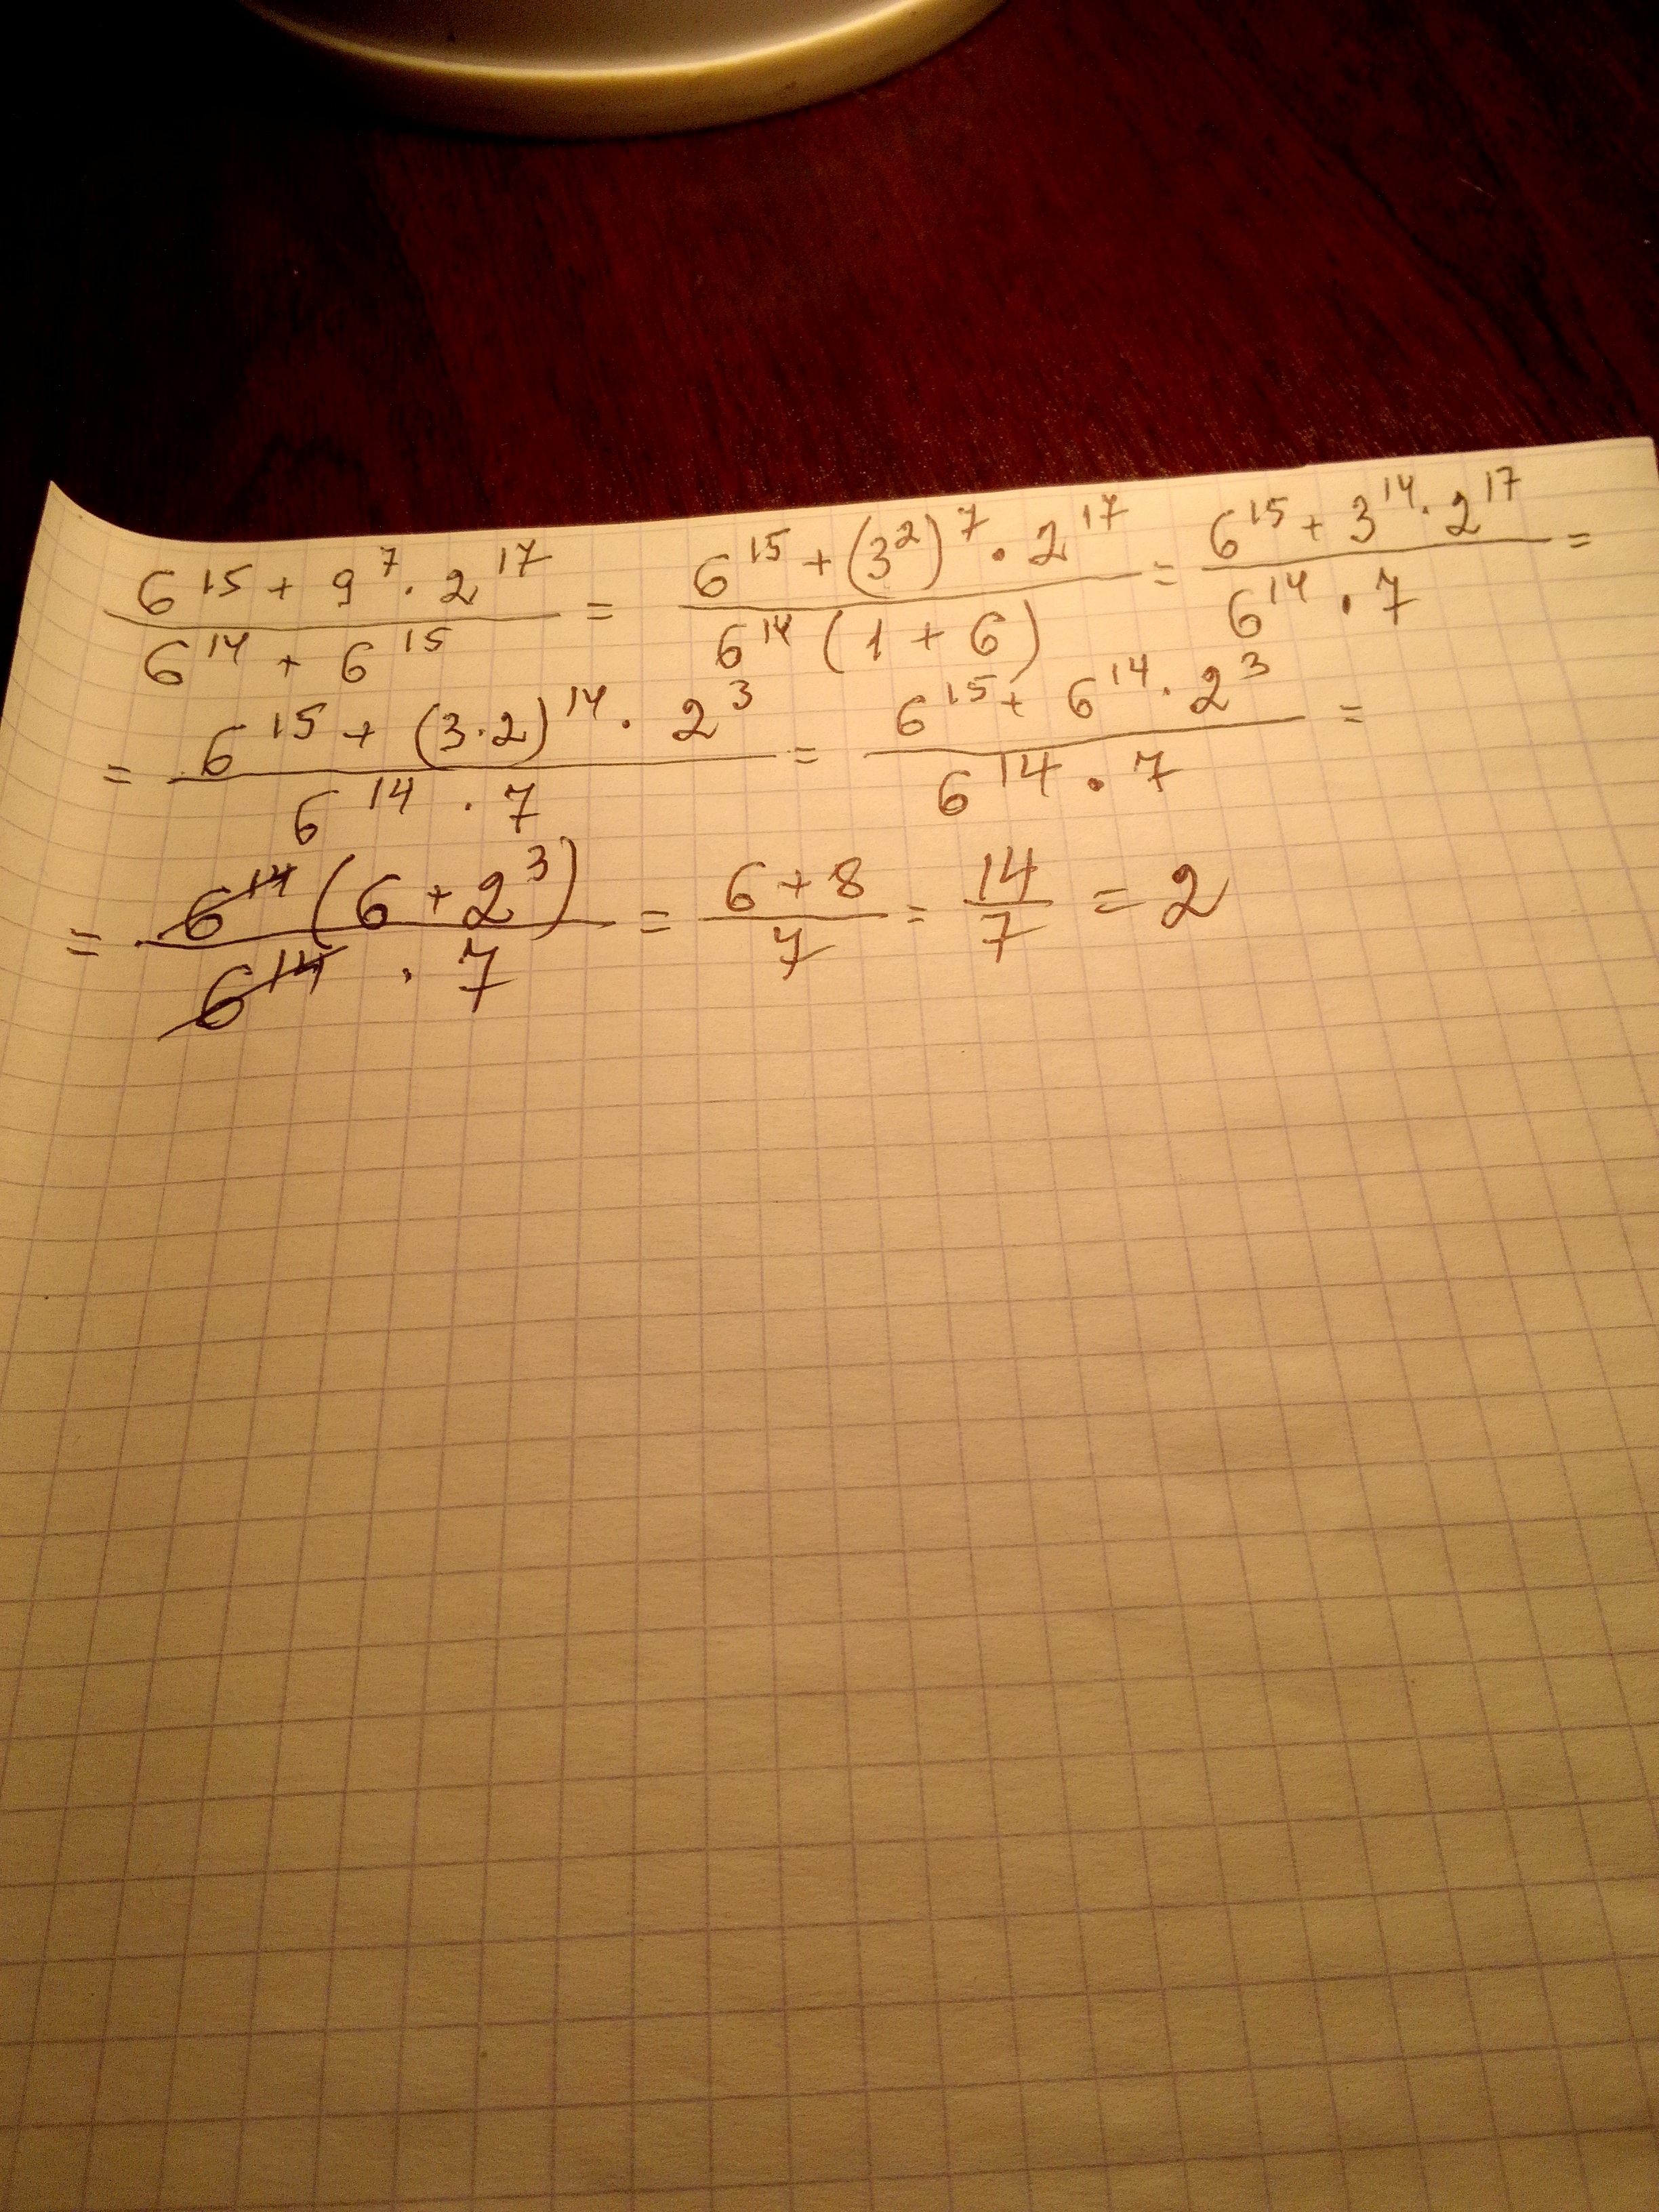 (6¹⁵ + 9⁷ · 2¹⁷) / (6¹⁴ + 6¹⁵) = (6¹⁵ + (3²)⁷ · 2¹⁷) / (6¹⁴ (1 + 6)) = (6¹⁵ + 3¹⁴ · 2¹⁷) / (6¹⁴ · 7) =
= (6¹⁵ + (3·2)¹⁴ · 2³) / (6¹⁴ · 7) = (6¹⁵ + 6¹⁴ · 2³) / (6¹⁴ · 7) =
= (6¹⁴ (6 + 2³)) / (6¹⁴ · 7) = (6 + 8) / 7 = 14 / 7 = 2